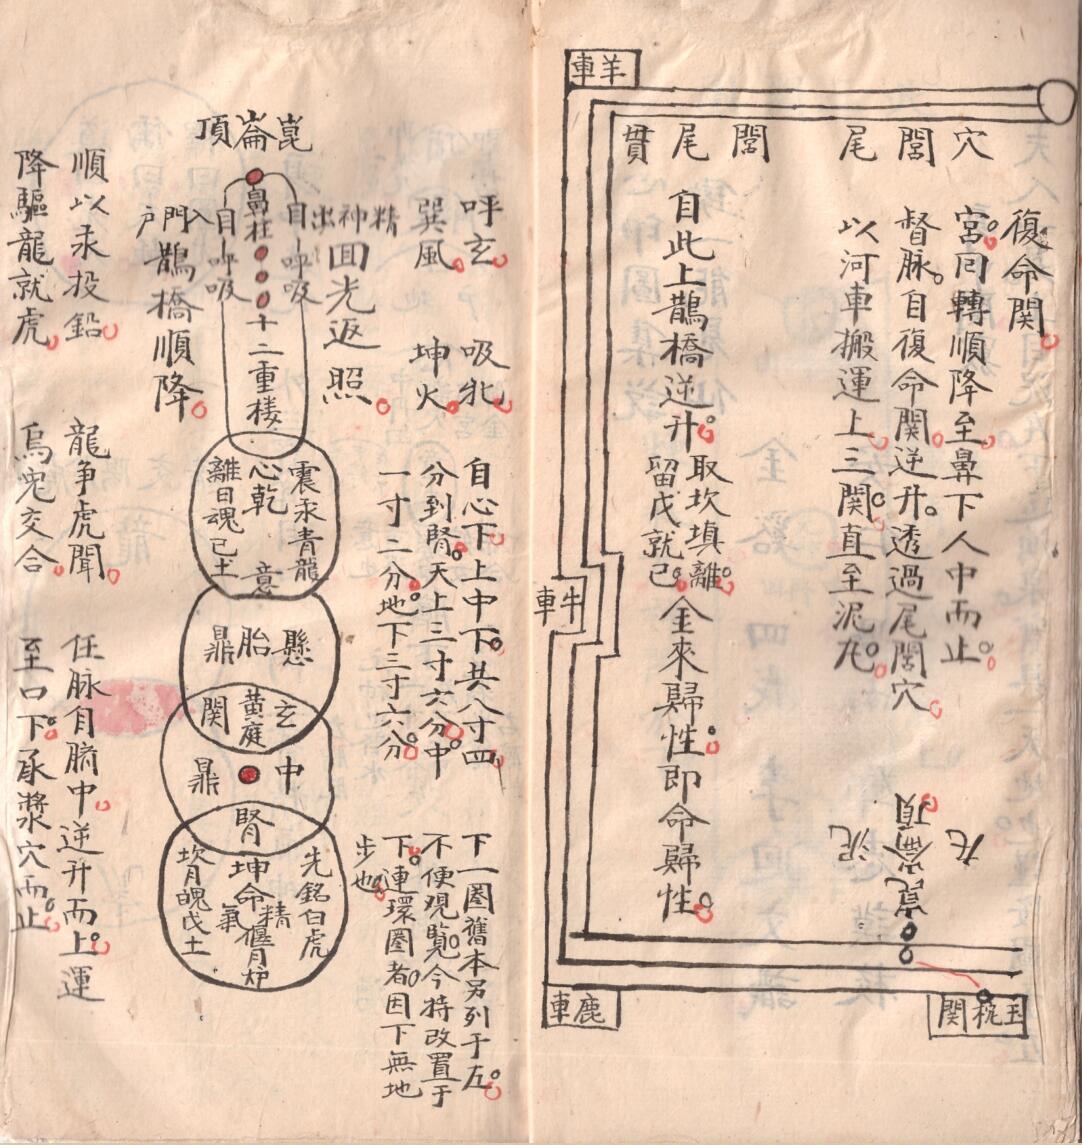 車羊
穴
閭
尾
閭
尾
貫
復命関
宮囘轉順降至鼻下人中而止
督脉自復命関逆升透過尾閭穴
以河車搬運上三関直至泥丸
自此上鵲橋逆升
取坎填離
留戊就己
金來歸性即命歸性
車牛
丸
崑崙頂
泥
車鹿
関枕玉
頂崙崑
呼玄
吸牝
巽風
坤火
精神出
目呼吸
囬光返照
鼻柱
十二重楼
目呼吸
入門戶
鵲橋順降
順以汞投鉛
降驅龍就虎
龍争虎聞
烏兎交合
任脉自臍中逆升而上運
至口下承漿穴而止
震汞青龍
心乾
意
離日魂己土
鼎胎懸
玄
黄庭
関
鼎中
腎
先鉛白虎
坤命
精
氣
偃月炉
坎月魄戊土
自心下上中下共八寸四
分到腎天上三寸六分中
一寸二分地下三寸六分
下一圏舊本另列于左
不便观覧今特改置于
下連環圏者因下無地
步也